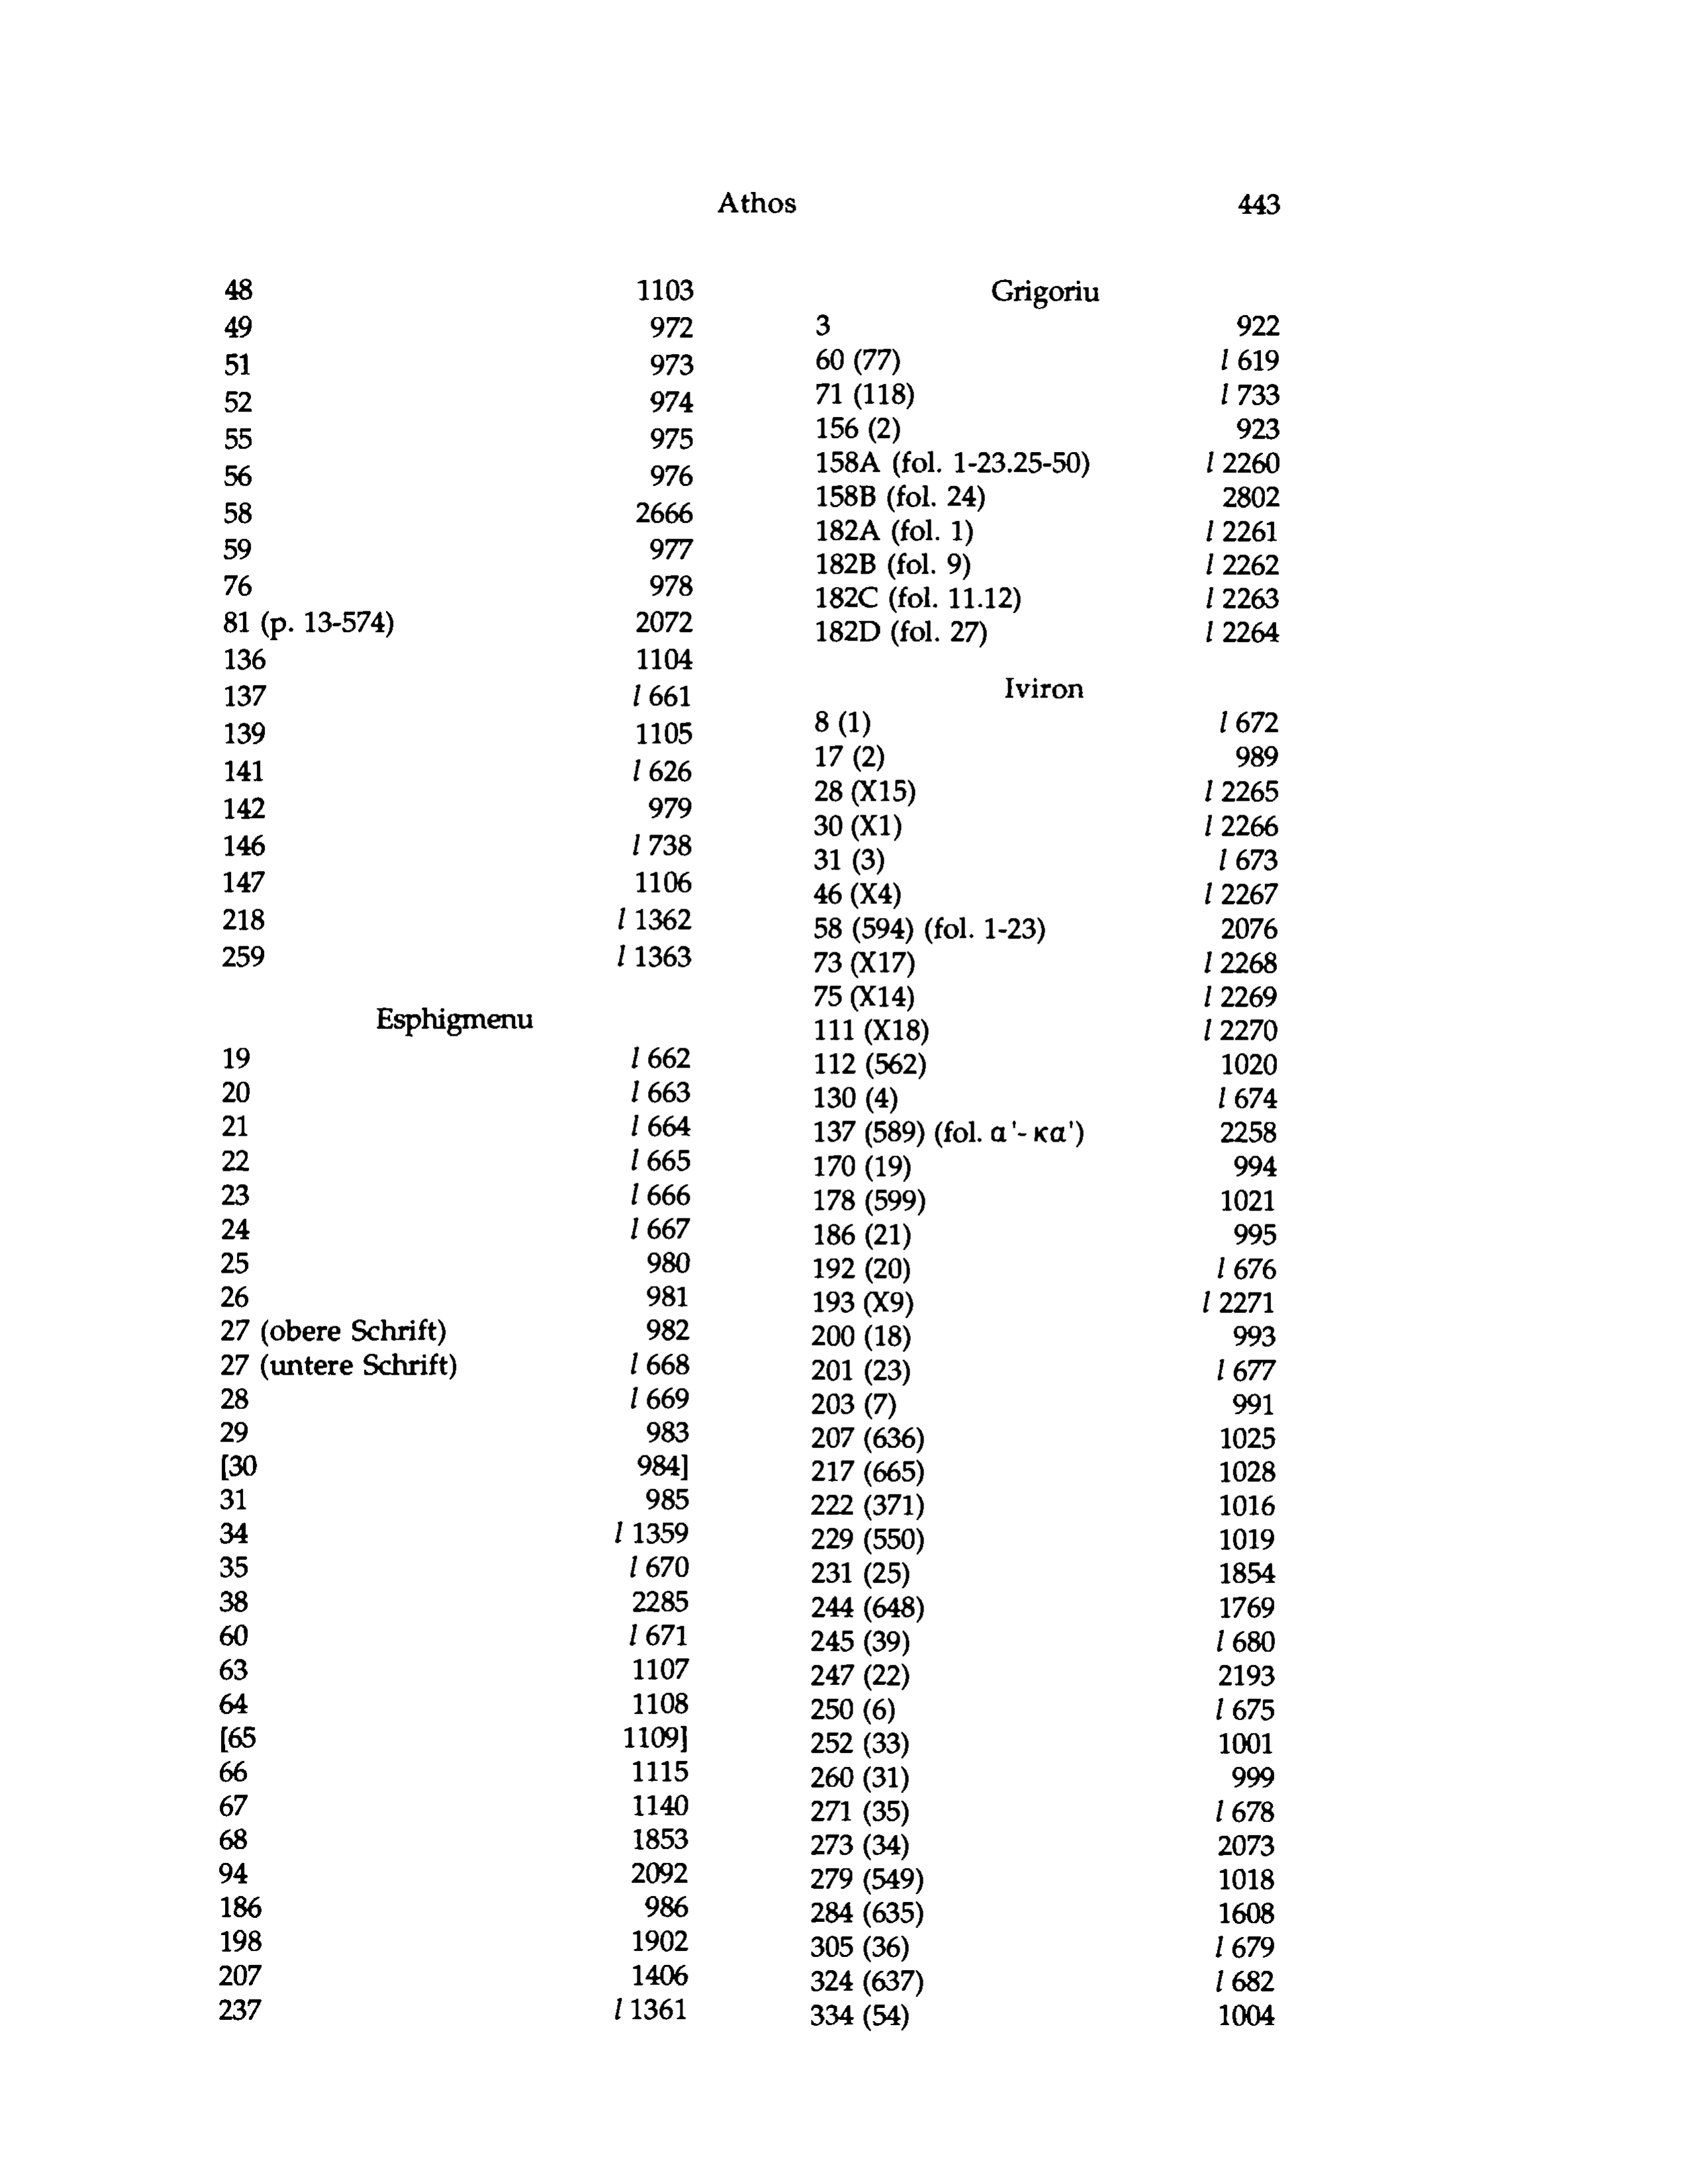 Athos 443
48 1103
49 972
51 973
52 974
55 975
56 976
58 2666
59 977
76 978
81 (p. 13-574) 2072
136 1104
137 l 661
139 1105
141 l 626
142 979
146 l 738
147 1106
218 l 1362
259 l 1363
Esphigmenu
19 l 662
20 l 663
21 l 664
22 l 665
23 l 666
24 l 667
25 980
26 981
27 (obere Schrift) 982
27 (untere Schrift) l 668
28 l 669
29 983
[30 984]
31 985
34 l 1359
35 l 670
38 2285
60 l 671
63 1107
64 1108
[65 1109]
66 1115
67 1140
68 1853
94 2092
186 986
198 1902
207 1406
237 l 1361
Grigoriu
3 922
60 (77) l 619
71 (118) l 733
156 (2) 923
158A (fol. 1-23.25-50) l 2260
158B (fol. 24) 2802
182A (fol. 1) l 2261
182B (fol. 9) l 2262
182C (fol. 11.12) l 2263
182D (fol. 27) l 2264
Iviron
8 (1) l 672
17 (2) 989
28 (X15) l 2265
30 (X1) l 2266
31 (3) l 673
46 (X4) l 2267
58 (594) (fol. 1-23) 2076
73 (X17) l 2268
75 (X14) l 2269
111 (X18) l 2270
112 (562) 1020
130 (4) l 674
137 (589) (fol. α'- κα') 2258
170 (19) 994
178 (599) 1021
186 (21) 995
192 (20) l 676
193 (X9) l 2271
200 (18) 993
201 (23) l 677
203 (7) 991
207 (636) 1025
217 (665) 1028
222 (371) 1016
229 (550) 1019
231 (25) 1854
244 (648) 1769
245 (39) l 680
247 (22) 2193
250 (6) l 675
252 (33) 1001
260 (31) 999
271 (35) l 678
273 (34) 2073
279 (549) 1018
284 (635) 1608
305 (36) l 679
324 (637) l 682
334 (54) 1004